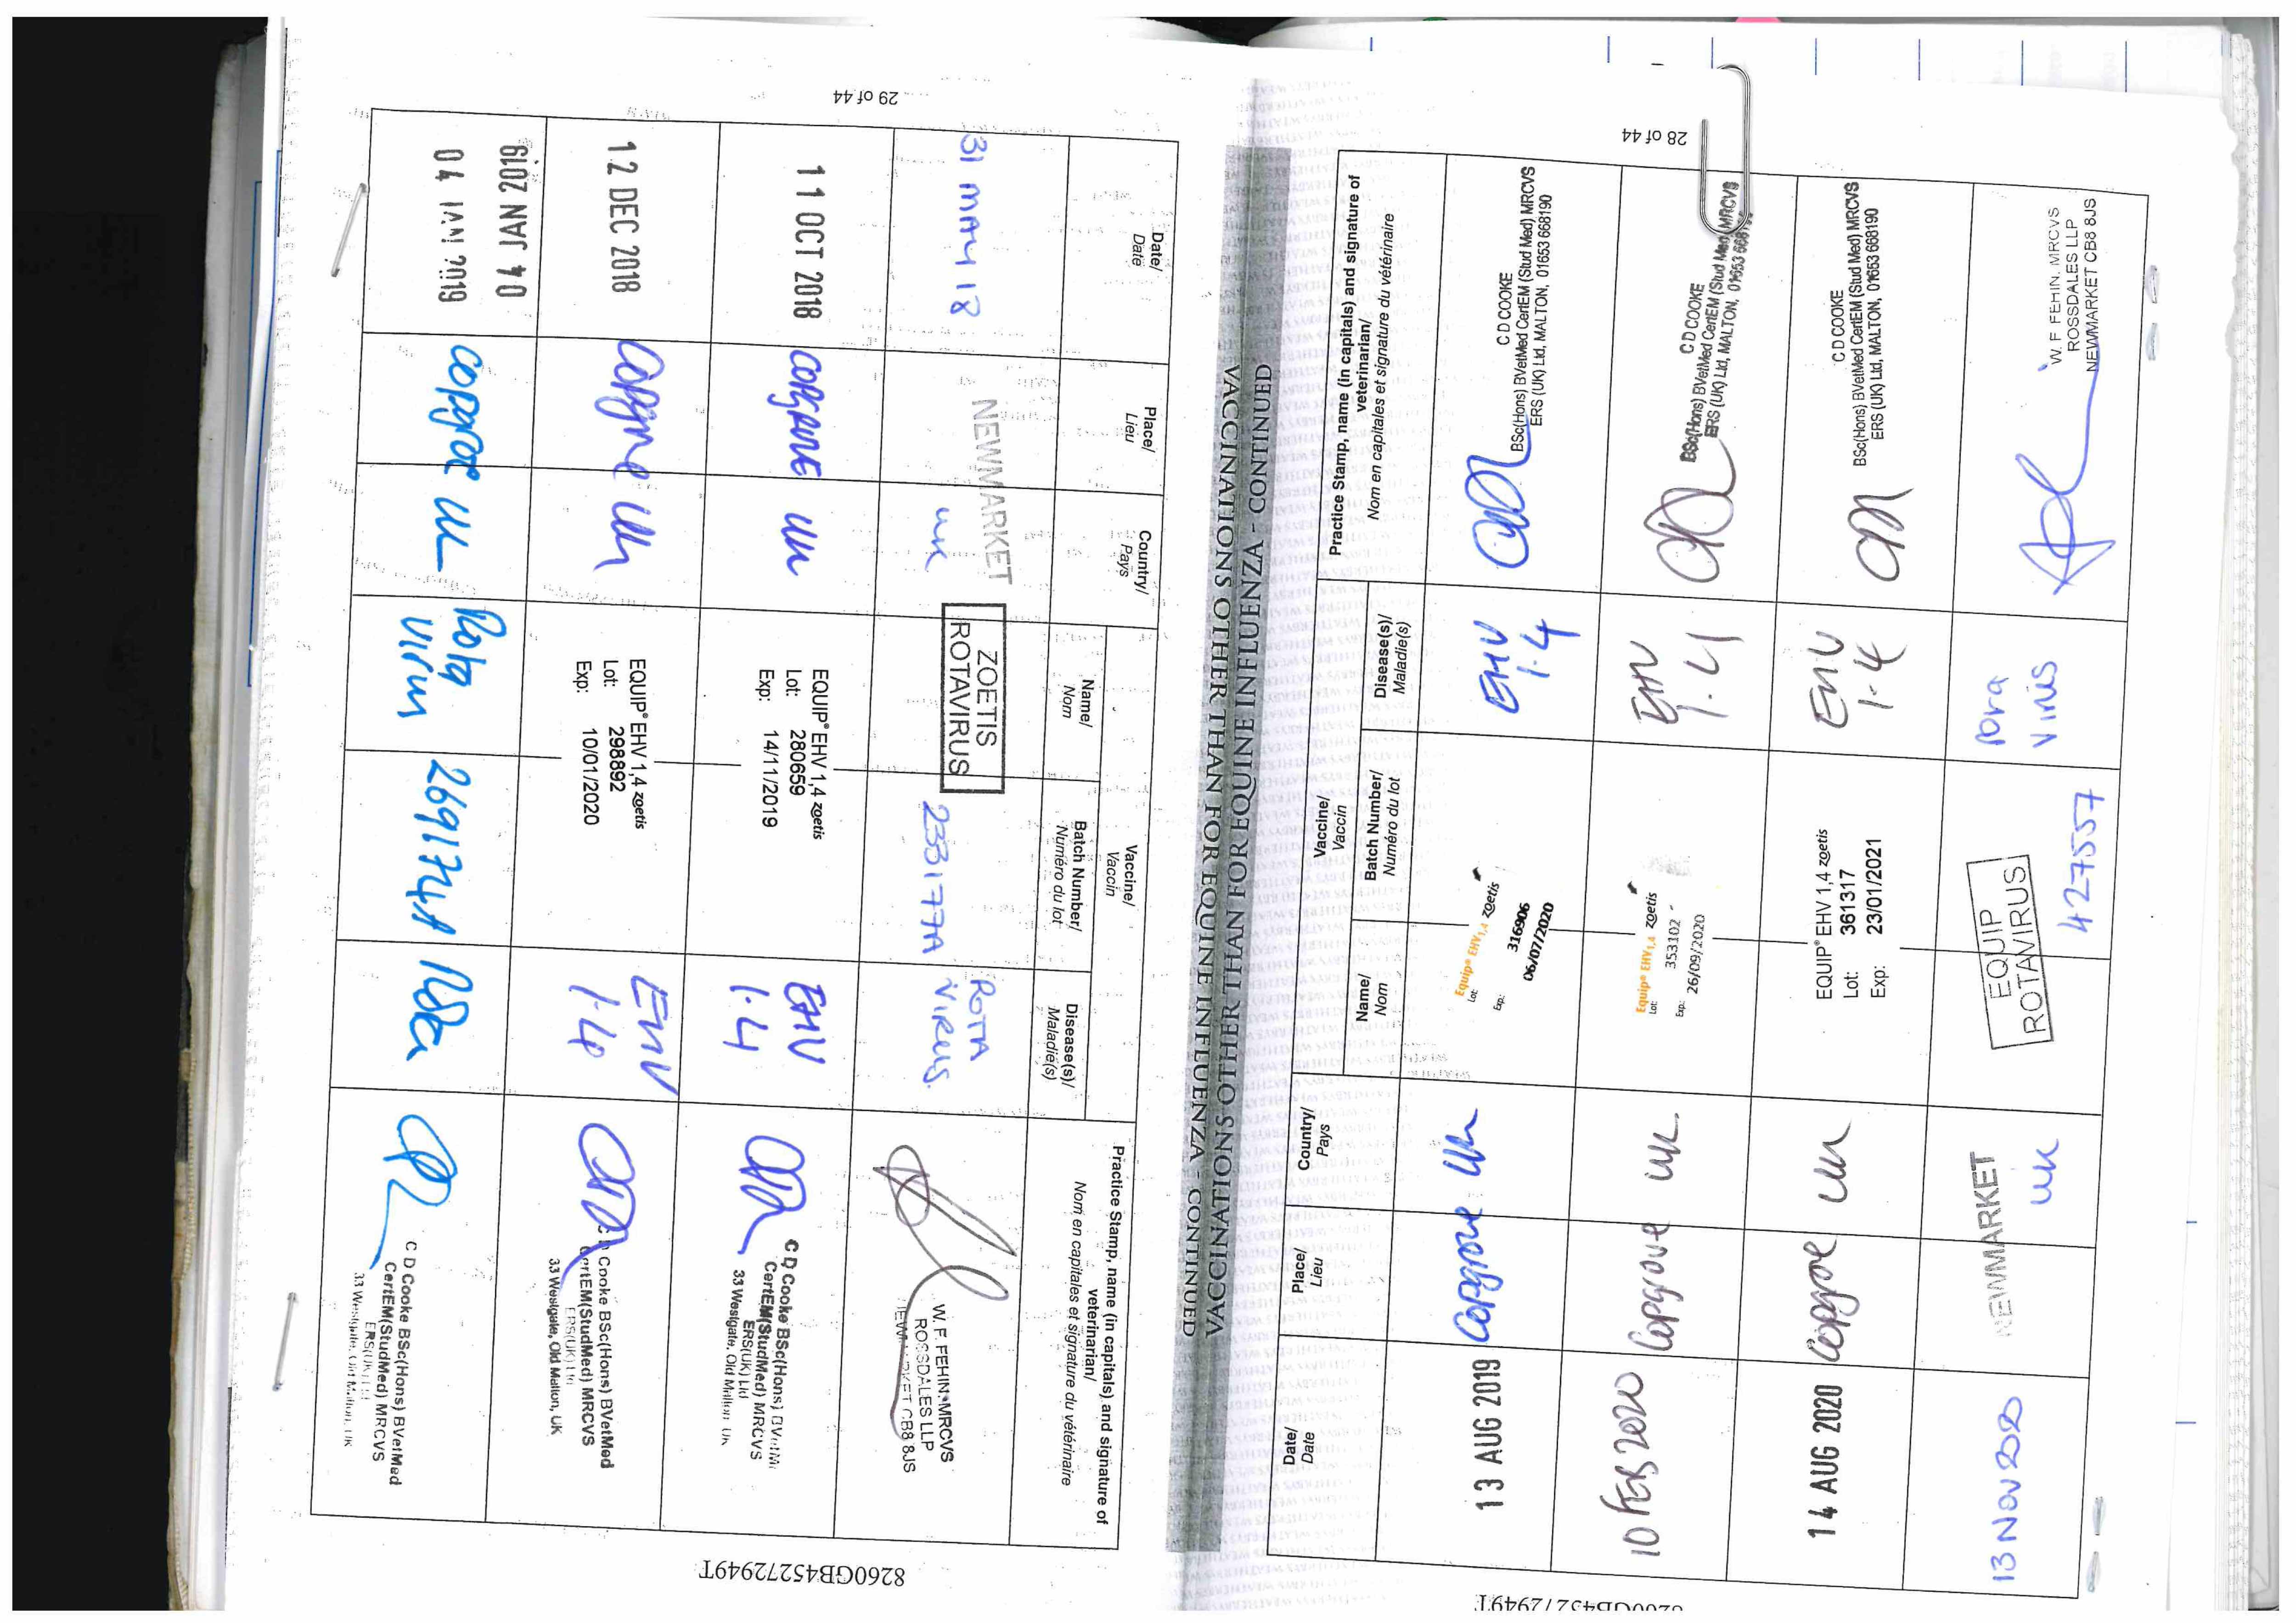 29 of 44
VACCINATIONS OTHER THAN FOR EQUINE INFLUENZA - CONTINUED
Date/
Date
Place/
Lieu
Country/
Pays
Vaccine/
Vaccin
Name/
Nom
Batch Number/
Numéro du lot
Disease(s)/
Maladie(s)
Practice Stamp, name (in capitals) and signature of
veterinarian/
Nom en capitales et signature du vétérinaire
31 MAY 18
NEWMARKET
UK
ZOETIS
ROTAVIRUS
233177A
ROTA
VIRUS.
W. F. FEHIN. MRCVS
ROSSDALES LLP
NEWMARKET CB8 8JS
11 OCT 2018
COPGROVE
UK
EQUIP® EHV 1,4 zoetis
Lot: 280659
Exp: 14/11/2019
EHV
1.4
C D Cooke BSc(Hons) BVetMed
CertEM(StudMed) MRCVS
ERS(UK) Ltd
33 Westgate, Old Malton, UK
12 DEC 2018
Copgrove
UK
EQUIP® EHV 1,4 zoetis
Lot: 298892
Exp: 10/01/2020
EHV
1.4
Cooke BSc(Hons) BVetMed
CertEM(StudMed) MRCVS
ERS(UK) Ltd
33 Westgate, Old Malton, UK
04 JAN 2019
04 JAN 2019
Copgrove
UK
Rota
Virus
269174A
Rota
C D Cooke BSc(Hons) BVetMed
CertEM(StudMed) MRCVS
ERS(UK) Ltd
33 Westgate, Old Malton, UK
8260GB45272949T
28 of 44
VACCINATIONS OTHER THAN FOR EQUINE INFLUENZA - CONTINUED
Date/
Date
Place/
Lieu
Country/
Pays
Vaccine/
Vaccin
Name/
Nom
Batch Number/
Numéro du lot
Disease(s)/
Maladie(s)
Practice Stamp, name (in capitals) and signature of
veterinarian/
Nom en capitales et signature du vétérinaire
13 AUG 2019
Copgrove
UK
Equip® EHV1,4 zoetis
Lot: 316906
Exp.: 06/07/2020
EHV
1.4
C D COOKE
BSc(Hons) BVetMed CertEM (Stud Med) MRCVS
ERS (UK) Ltd, MALTON, 01653 668190
10 FEB 2020
Copgrove
UK
Equip® EHV1,4 zoetis
Lot: 353102
Exp.: 26/09/2020
EHV
1.4
C D COOKE
BSc(Hons) BVetMed CertEM (Stud Med) MRCVS
ERS (UK) Ltd, MALTON, 01653
14 AUG 2020
Copgrove
UK
EQUIP® EHV 1,4 zoetis
Lot: 361317
Exp: 23/01/2021
EHV
1.4
C D COOKE
BSc(Hons) BVetMed CertEM (Stud Med) MRCVS
ERS (UK) Ltd, MALTON, 01653 668190
13 NOV 2020
NEWMARKET
UK
EQUIP
ROTAVIRUS
427557
Rota
Virus
W. F FEHIN. MRCVS
ROSSDALES LLP
NEWMARKET CB8 8JS